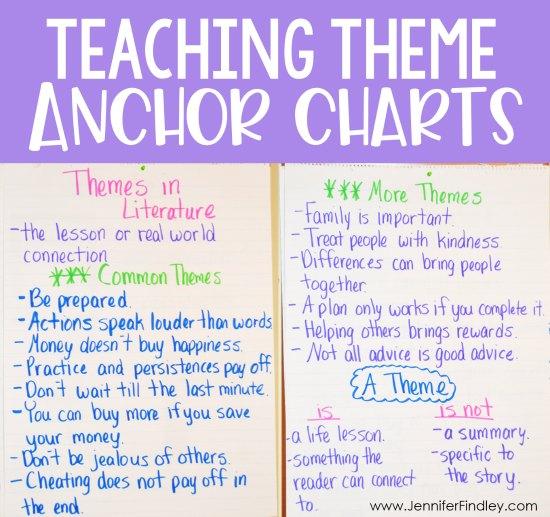 TEACHING THEME
ANCHOR CHARTS
Themes in
Literature
-the lesson or real world
connection
*** Common Themes
-Be prepared.
-Actions speak louder than words
-Money doesn't buy happiness.
-Practice and persistences pay off.
-Don't wait till the last minute.
-You can buy more if you save
your money.
-Don't be jealous of others.
-Cheating does not pay off in
the end.
*** More Themes
-Family is important.
-Treat people with kindness.
-Differences can bring people
together.
-A plan only works if you complete it.
-Helping others brings rewards.
-Not all advice is good advice.
A Theme
is
-a life lesson.
-something the
reader can connect
to.
is not
-a summary.
-specific to
the story.
www.JenniferFindley.com